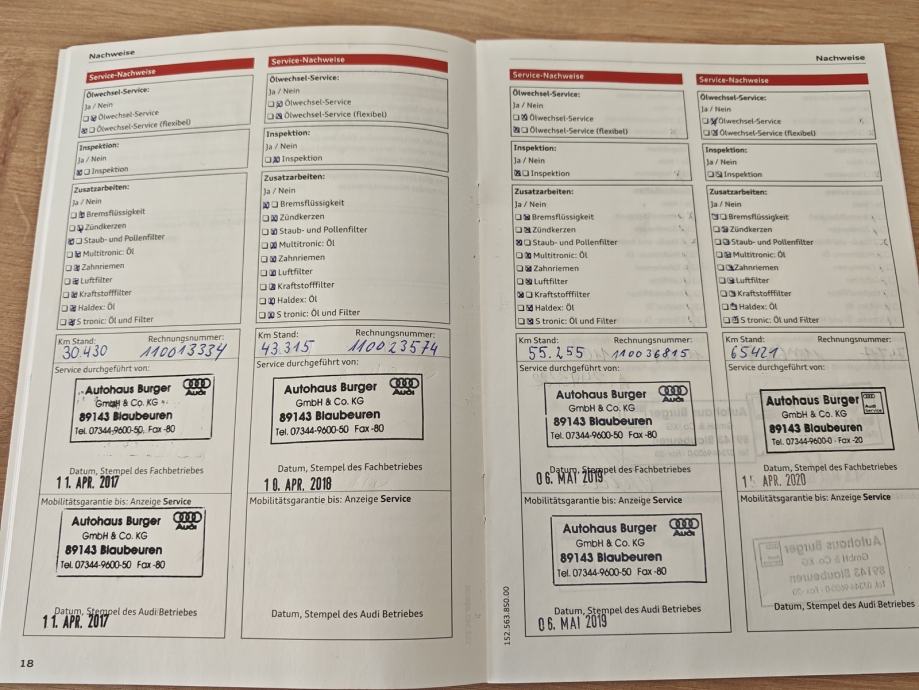 Nachweise
Service-Nachweise
Ölwechsel-Service:
Ja / Nein
Ölwechsel-Service
Ölwechsel-Service (flexibel)
Inspektion:
Ja / Nein
Inspektion
Zusatzarbeiten:
Ja / Nein
Bremsflüssigkeit
Zündkerzen
Staub- und Pollenfilter
Multitronic: Öl
Zahnriemen
Luftfilter
Kraftstofffilter
Haldex: Öl
S tronic: Öl und Filter
Km Stand: Rechnungsnummer:
30.430 110013334
Service durchgeführt von:
Autohaus Burger
GmbH & Co. KG
Audi
89143 Blaubeuren
Tel. 07344-9600-50, Fax -80
Datum, Stempel des Fachbetriebes
11. APR. 2017
Mobilitätsgarantie bis: Anzeige Service
Autohaus Burger
GmbH & Co. KG
Audi
89143 Blaubeuren
Tel. 07344-9600-50 Fax -80
Datum, Stempel des Audi Betriebes
11. APR. 2017
18
Service-Nachweise
Ölwechsel-Service:
Ja / Nein
Ölwechsel-Service
Ölwechsel-Service (flexibel)
Inspektion:
Ja / Nein
Inspektion
Zusatzarbeiten:
Ja / Nein
Bremsflüssigkeit
Zündkerzen
Staub- und Pollenfilter
Multitronic: Öl
Zahnriemen
Luftfilter
Kraftstofffilter
Haldex: Öl
S tronic: Öl und Filter
Km Stand: Rechnungsnummer:
43.315 110023574
Service durchgeführt von:
Autohaus Burger
GmbH & Co. KG
Audi
89143 Blaubeuren
Tel. 07344-9600-50 Fax -80
Datum, Stempel des Fachbetriebes
10. APR. 2018
Mobilitätsgarantie bis: Anzeige Service
Datum, Stempel des Audi Betriebes
Nachweise
Service-Nachweise
Ölwechsel-Service:
Ja / Nein
Ölwechsel-Service
Ölwechsel-Service (flexibel)
Inspektion:
Ja / Nein
Inspektion
Zusatzarbeiten:
Ja / Nein
Bremsflüssigkeit
Zündkerzen
Staub- und Pollenfilter
Multitronic: Öl
Zahnriemen
Luftfilter
Kraftstofffilter
Haldex: Öl
S tronic: Öl und Filter
Km Stand: Rechnungsnummer:
55.255 110036815
Service durchgeführt von:
Autohaus Burger
GmbH & Co. KG
Audi
89143 Blaubeuren
Tel. 07344-9600-50 Fax -80
Datum, Stempel des Fachbetriebes
06. MAI 2019
Mobilitätsgarantie bis: Anzeige Service
Autohaus Burger
GmbH & Co. KG
Audi
89143 Blaubeuren
Tel. 07344-9600-50 Fax -80
Datum, Stempel des Audi Betriebes
06. MAI 2019
152.563.850.00
Service-Nachweise
Ölwechsel-Service:
Ja / Nein
Ölwechsel-Service
Ölwechsel-Service (flexibel)
Inspektion:
Ja / Nein
Inspektion
Zusatzarbeiten:
Ja / Nein
Bremsflüssigkeit
Zündkerzen
Staub- und Pollenfilter
Multitronic: Öl
Zahnriemen
Luftfilter
Kraftstofffilter
Haldex: Öl
S tronic: Öl und Filter
Km Stand: Rechnungsnummer:
65421
Service durchgeführt von:
Autohaus Burger
Audi
Service
GmbH & Co. KG
89143 Blaubeuren
Tel. 07344-9600-0 · Fax -20
Datum, Stempel des Fachbetriebes
APR. 2020
Mobilitätsgarantie bis: Anzeige Service
Autohaus Burger
GmbH & Co. KG
89143 Blaubeuren
Datum, Stempel des Audi Betriebes